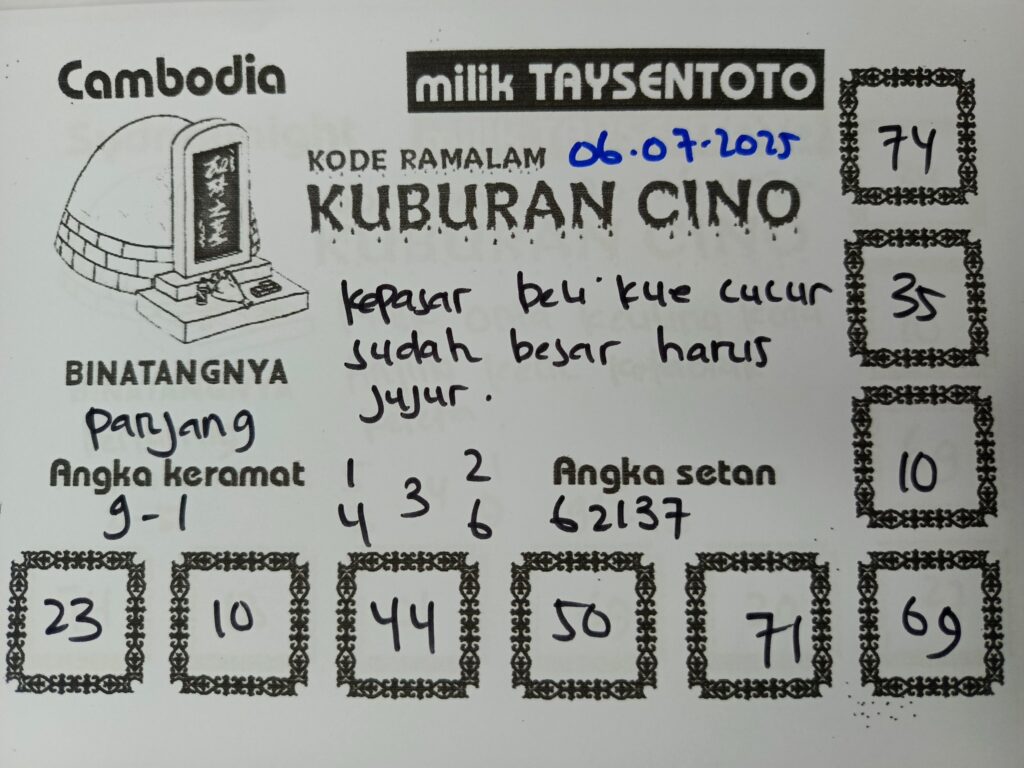 Cambodia
milik TAYSENTOTO
KODE RAMALAM 06.07.2025
KUBURAN CINO
74
kepasar beli kue cucur
sudah besar harus
jujur.
35
BINATANGNYA
panjang
10
Angka keramat
9-1
1 2
3
4 6
Angka setan
62137
23 10 44 50 71 69